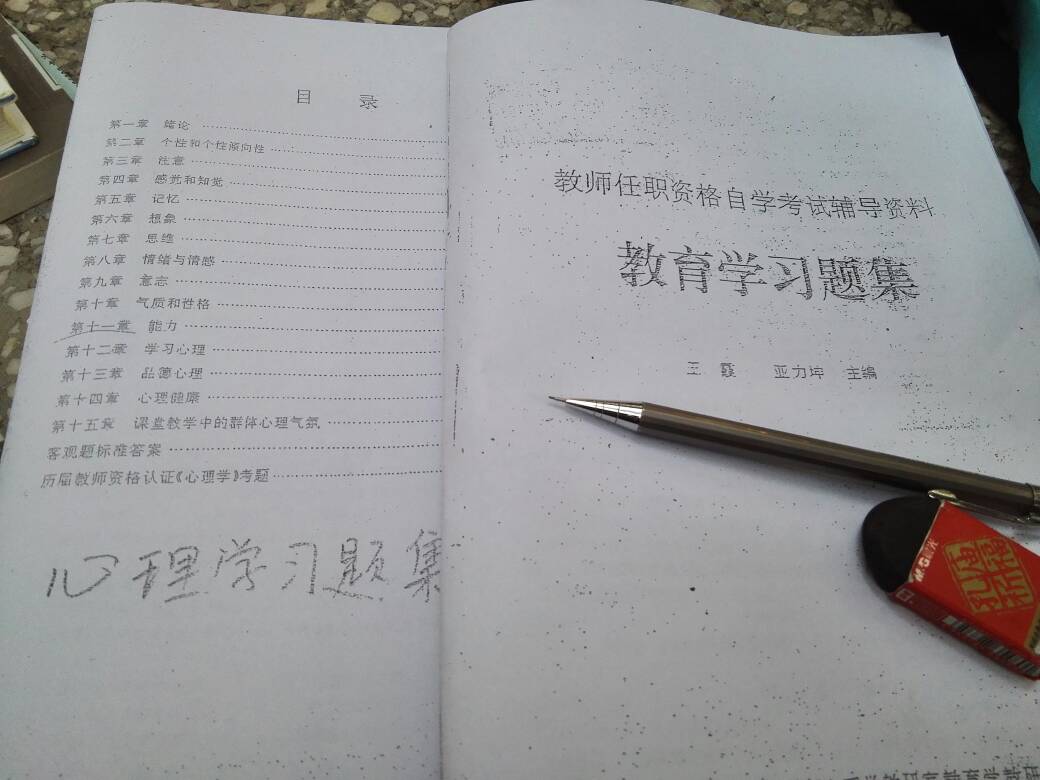 目 录
第一章 绪论
第二章 个性和个性倾向性
第三章 注意
第四章 感觉和知觉
第五章 记忆
第六章 想象
第七章 思维
第八章 情绪与情感
第九章 意志
第十章 气质和性格
第十一章 能力
第十二章 学习心理
第十三章 品德心理
第十四章 心理健康
第十五章 课堂教学中的群体心理气氛
客观题标准答案
历届教师资格认证《心理学》考题
心理学习题集
教师任职资格自学考试辅导资料
教育学习题集
王霞 亚力坤 主编
M&G晨光
孔庙祈福